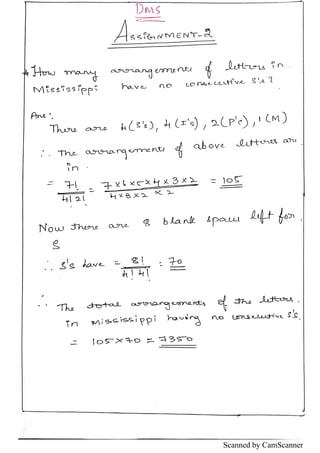 DMS
ASSIGNMENT-2
How many arrangements of letters in
Mississippi have no consecutive S's?
Ans:
There are 4(S's), 4(I's), 2(P's), 1(M)
∴ The arrangements of above letters are
in
= 7!/4!2! = 7×6×5×4×3×2/4×3×2×2 = 105
Now there are 8 blank spaces left for
S
∴ S's have = 8!/4!4! = 70
∴ The total arrangements of the letters
in Mississippi having no consecutive S's.
= 105×70 = 7350
Scanned by CamScanner